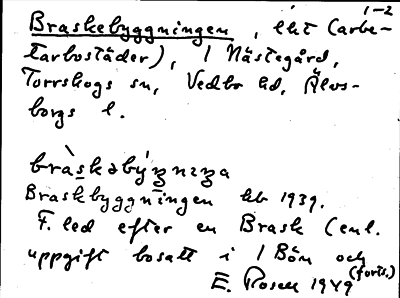 1-2
Braskebyggningen, lht (arbe-
tarbostäder), 1 Nästegård,
Torrskogs sn, Vedbo hd, Älvs-
borgs l.
bràskəby´ꝣnıꝣa
Braskbyggningen hb 1939.
F. led efter en Brask (enl.
uppgift bosatt i 1 Bön och
(forts.)
E. Rosell 1949